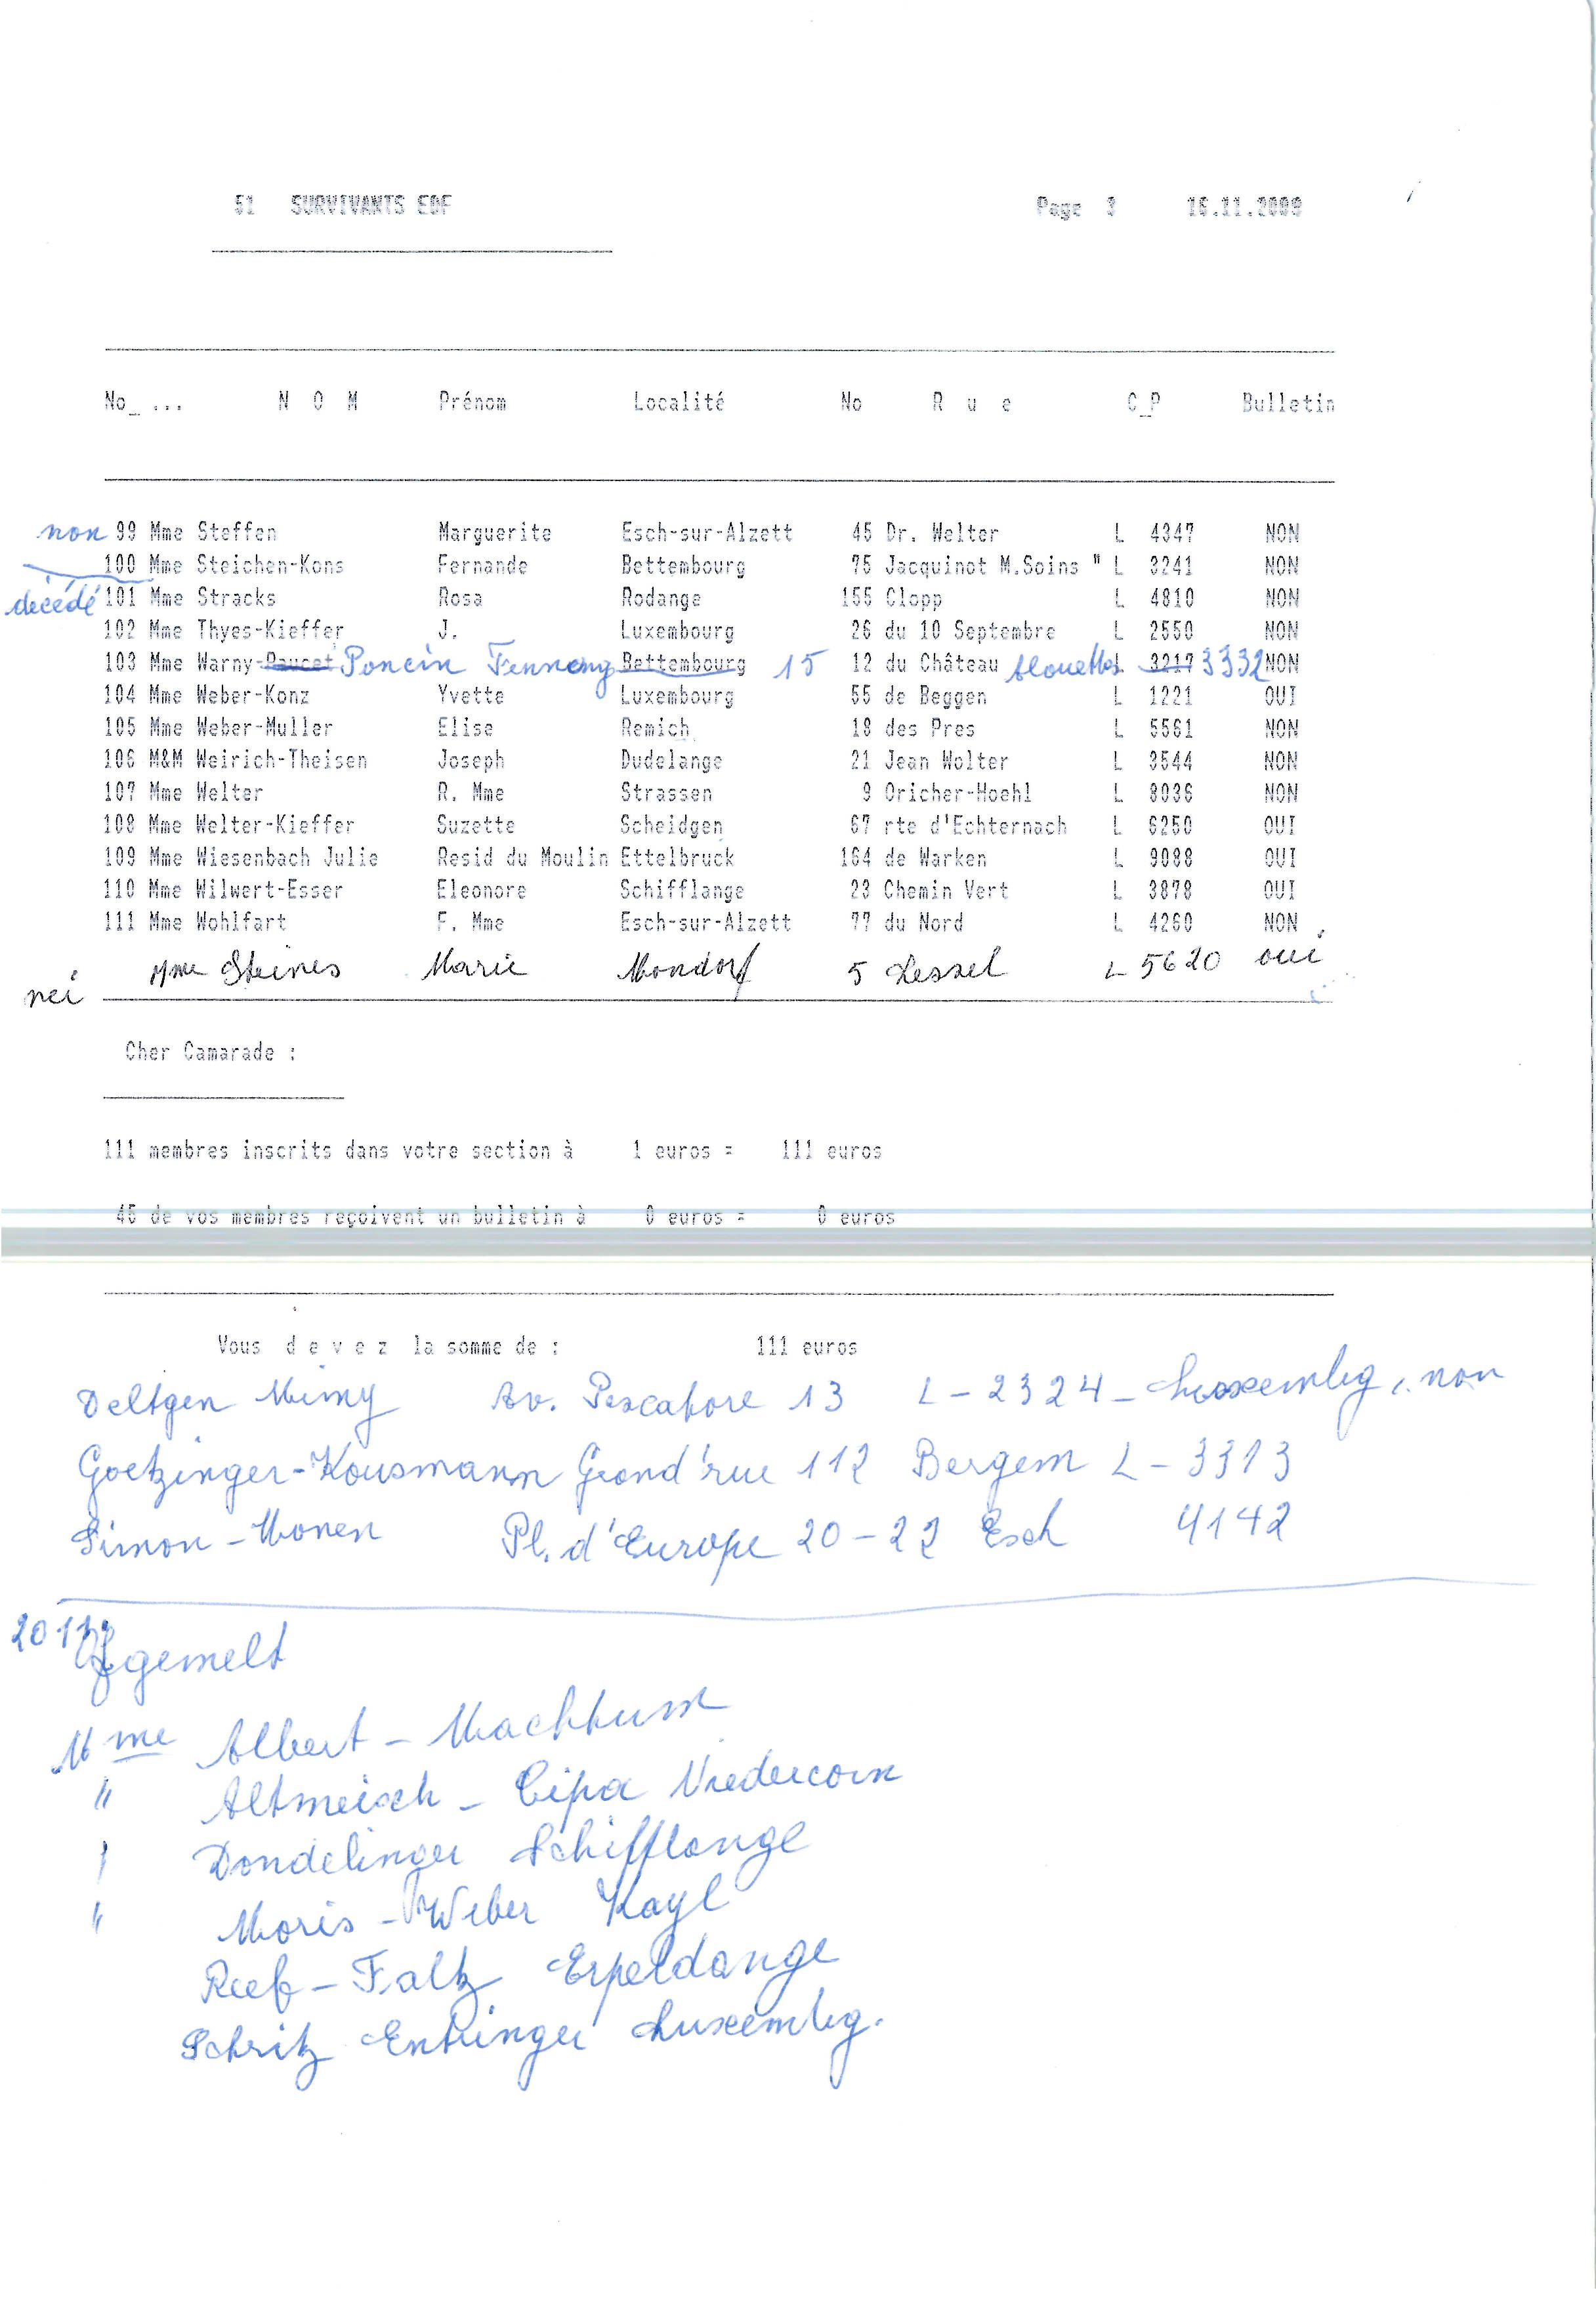 51 SURVIVANTS EDF Page 3 16.11.2009
No_ ... N O M Prénom Localité No R u e C_P Bulletin
non 99 Mme Steffen Marguerite Esch-sur-Alzett 45 Dr. Welter L 4347 NON
100 Mme Steichen-Kons Fernande Bettembourg 75 Jacquinot M.Soins " L 3241 NON
décédé 101 Mme Stracks Rosa Rodange 155 Clopp L 4810 NON
102 Mme Thyes-Kieffer J. Luxembourg 26 du 10 Septembre L 2550 NON
103 Mme Warny-Paucet Poncin Fennange Bettembourg 15 12 du Château Alouettes L 3217 3332 NON
104 Mme Weber-Konz Yvette Luxembourg 55 de Beggen L 1221 OUI
105 Mme Weber-Muller Elise Remich 18 des Pres L 5561 NON
106 M&M Weirich-Theisen Joseph Dudelange 21 Jean Wolter L 3544 NON
107 Mme Welter R. Mme Strassen 9 Oricher-Hoehl L 8036 NON
108 Mme Welter-Kieffer Suzette Scheidgen 67 rte d'Echternach L 6250 OUI
109 Mme Wiesenbach Julie Resid du Moulin Ettelbruck 164 de Warken L 9088 OUI
110 Mme Wilwert-Esser Eleonore Schifflange 23 Chemin Vert L 3878 OUI
111 Mme Wohlfart F. Mme Esch-sur-Alzett 77 du Nord L 4260 NON
nei Mme Steines Marie Mondorf 5 Lessel L 5620 oui
Cher Camarade :
111 membres inscrits dans votre section à 1 euros = 111 euros
45 de vos membres reçoivent un bulletin à 0 euros = 0 euros
Vous d e v e z la somme de : 111 euros
Deltgen Mimy Av. Pescatore 13 L-2324-Luxembg, non
Goetzinger-Kousmann Grand'rue 112 Bergem L-3313
Simon-Monen Pl. d'Europe 20-22 Esch 4142
Ofgemelt
Mme Albert - Machtum
" Altmeisch - Cipa Niedercorn
" Dondelinger Schifflange
" Moris-Weber Kayl
Reef-Faltz Erpeldange
Schritz Entringer Luxembg.